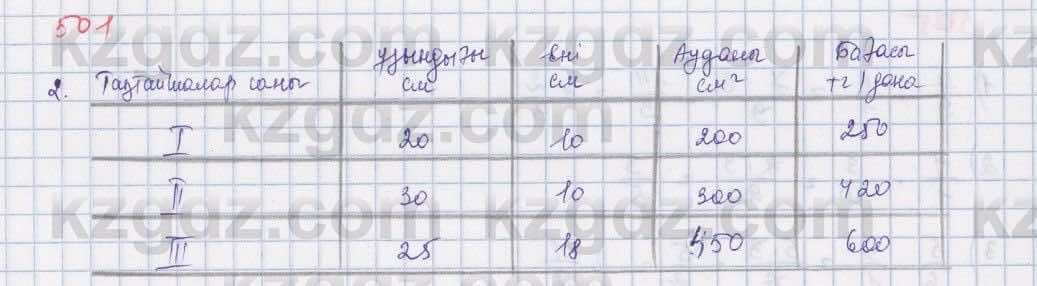 501
2. Тақтайшалар саны ұзындығы см ені см Ауданы см² Бағасы тг/дана
I 20 10 200 250
II 30 10 300 420
III 25 18 450 600
kzgdz.com kzgdz.com
kzgdz.com kzgdz.com
kzgdz.com kzgdz.com